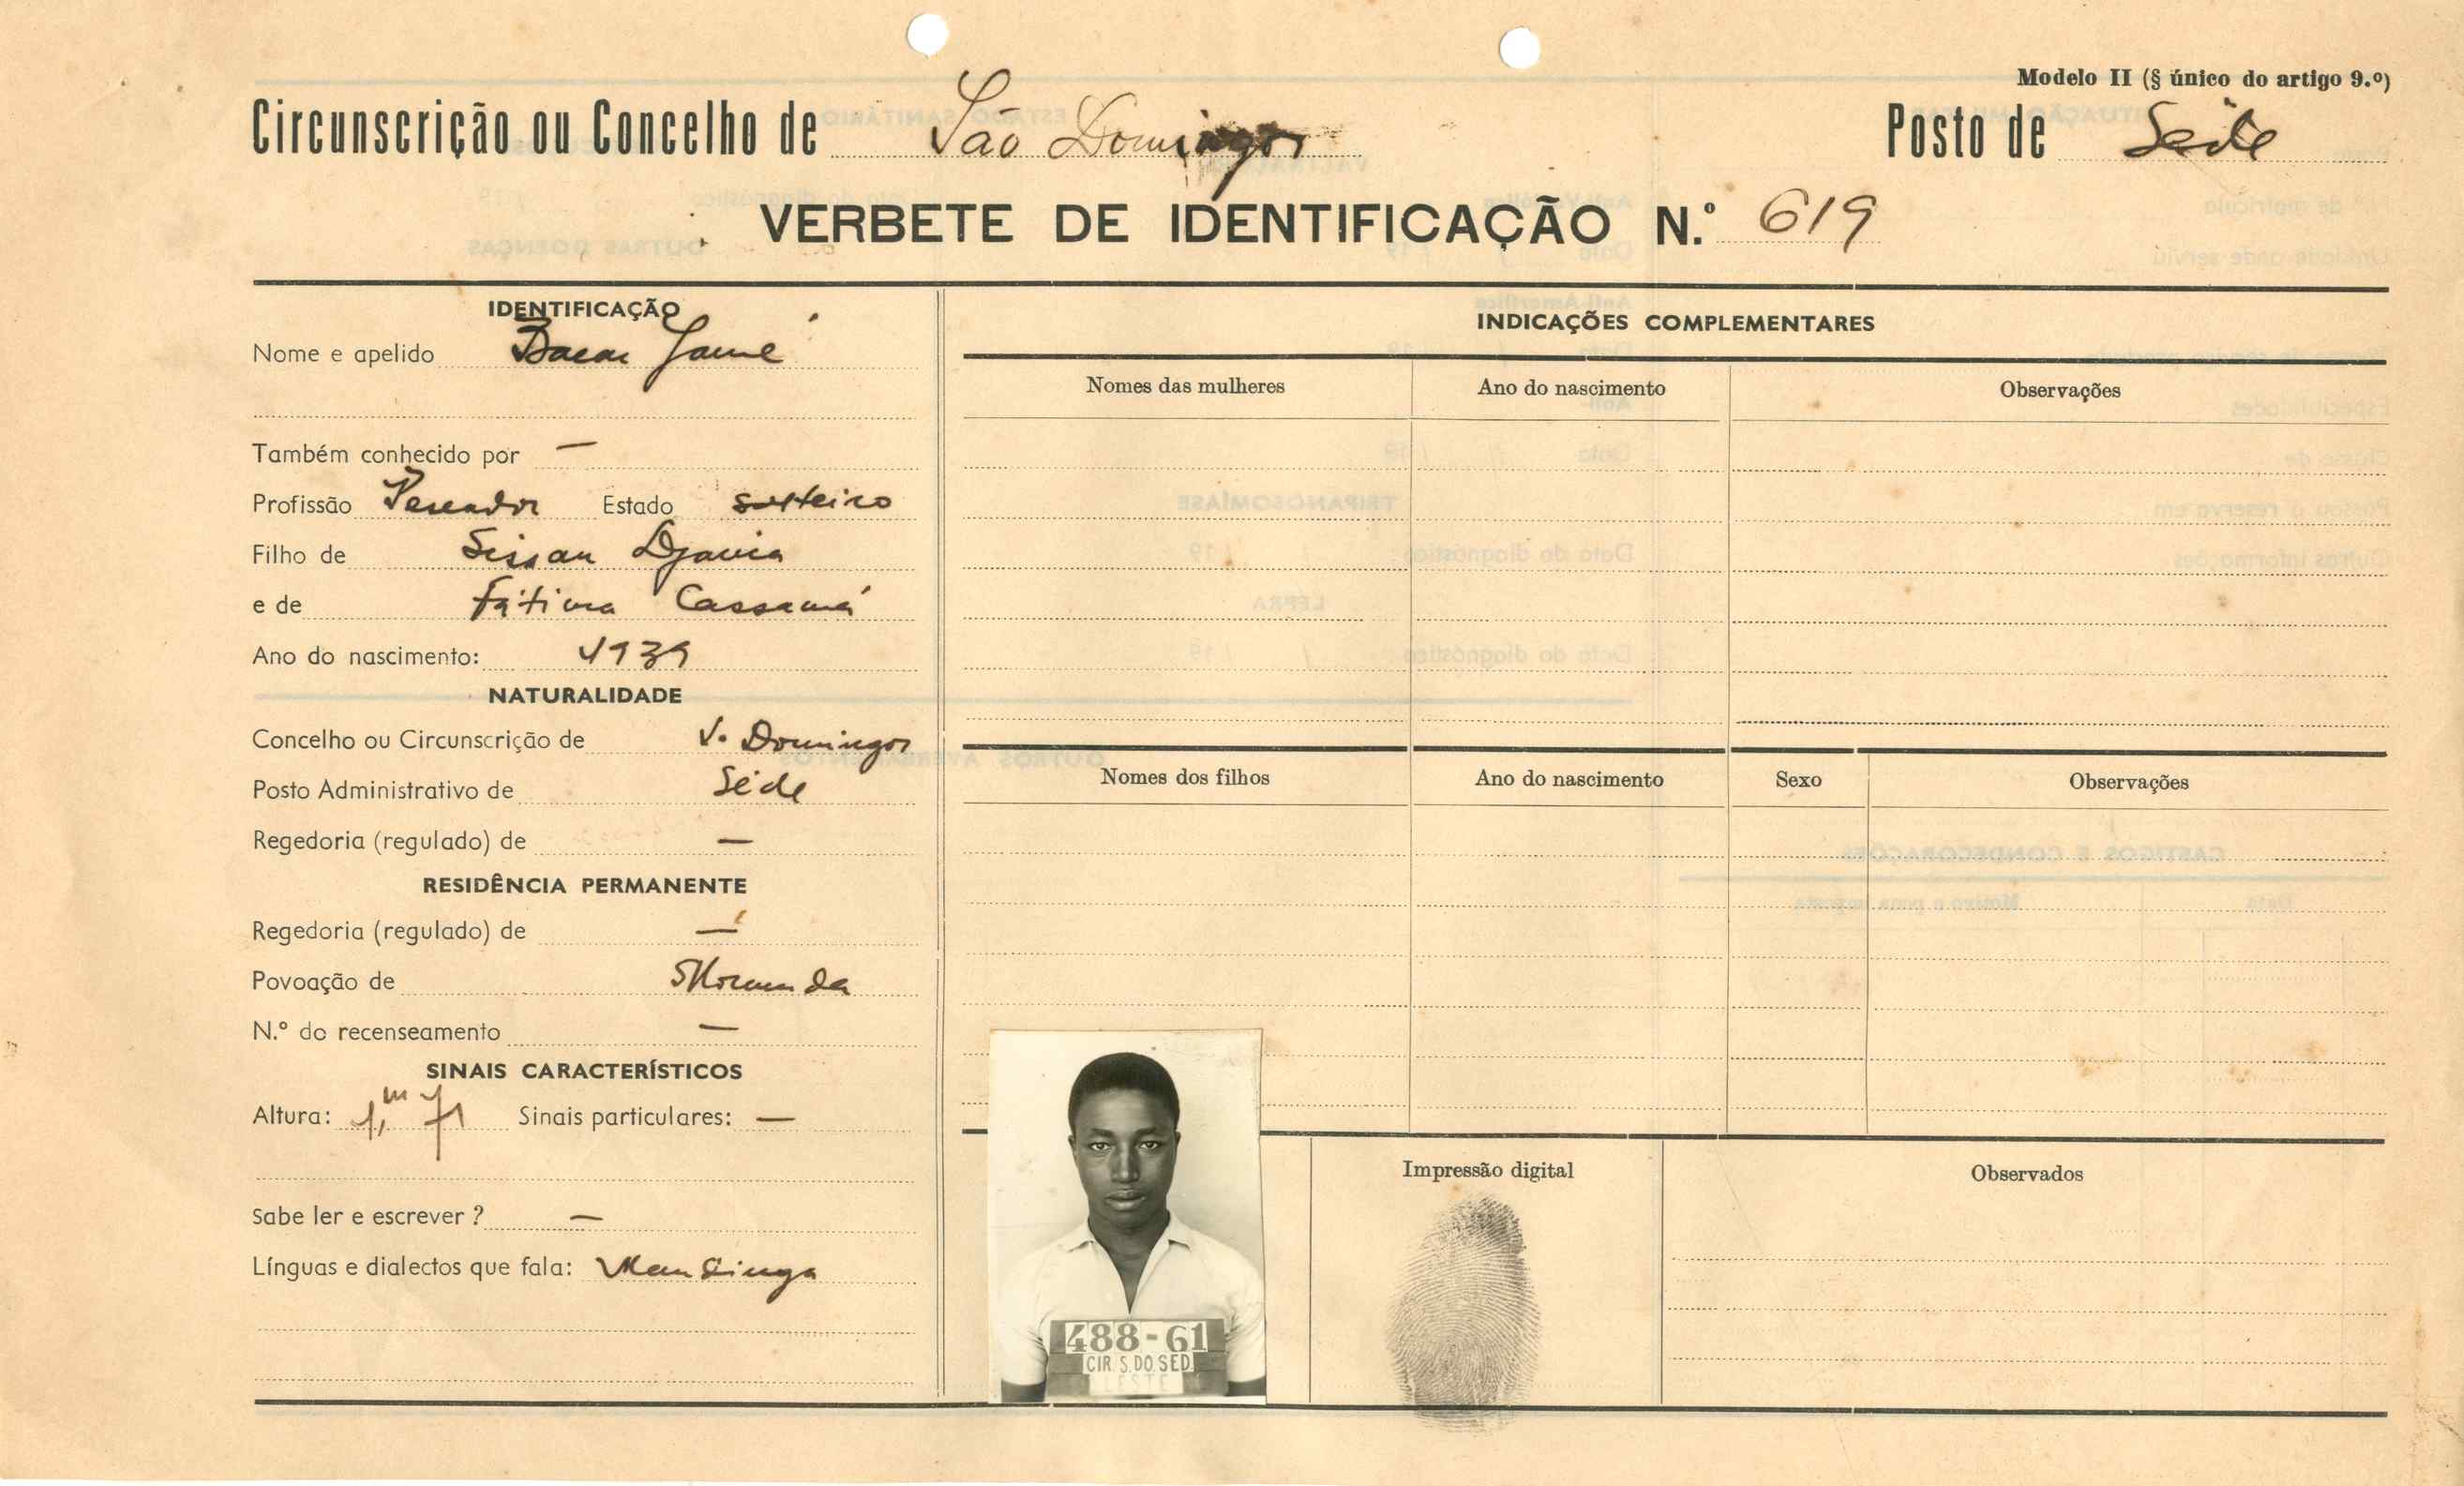 Modelo II (§ único do artigo 9.º)
Circunscrição ou Concelho de São Domingos Posto de Sede
VERBETE DE IDENTIFICAÇÃO N.º 619
IDENTIFICAÇÃO
Nome e apelido Bacar Jamé
Também conhecido por —
Profissão Pescador Estado solteiro
Filho de Sissau Djavia
e de Fátima Cassamá
Ano do nascimento: 1939
NATURALIDADE
Concelho ou Circunscrição de S. Domingos
Posto Administrativo de Sede
Regedoria (regulado) de —
RESIDÊNCIA PERMANENTE
Regedoria (regulado) de —
Povoação de
N.º do recenseamento —
SINAIS CARACTERÍSTICOS
Altura: 1,m 71 Sinais particulares: —
Sabe ler e escrever ? —
Línguas e dialectos que fala: Mandinga
INDICAÇÕES COMPLEMENTARES
Nomes das mulheres Ano do nascimento Observações
Nomes dos filhos Ano do nascimento Sexo Observações
488-61
CIR. S. DO. SED.
LESTE
Impressão digital
Observados